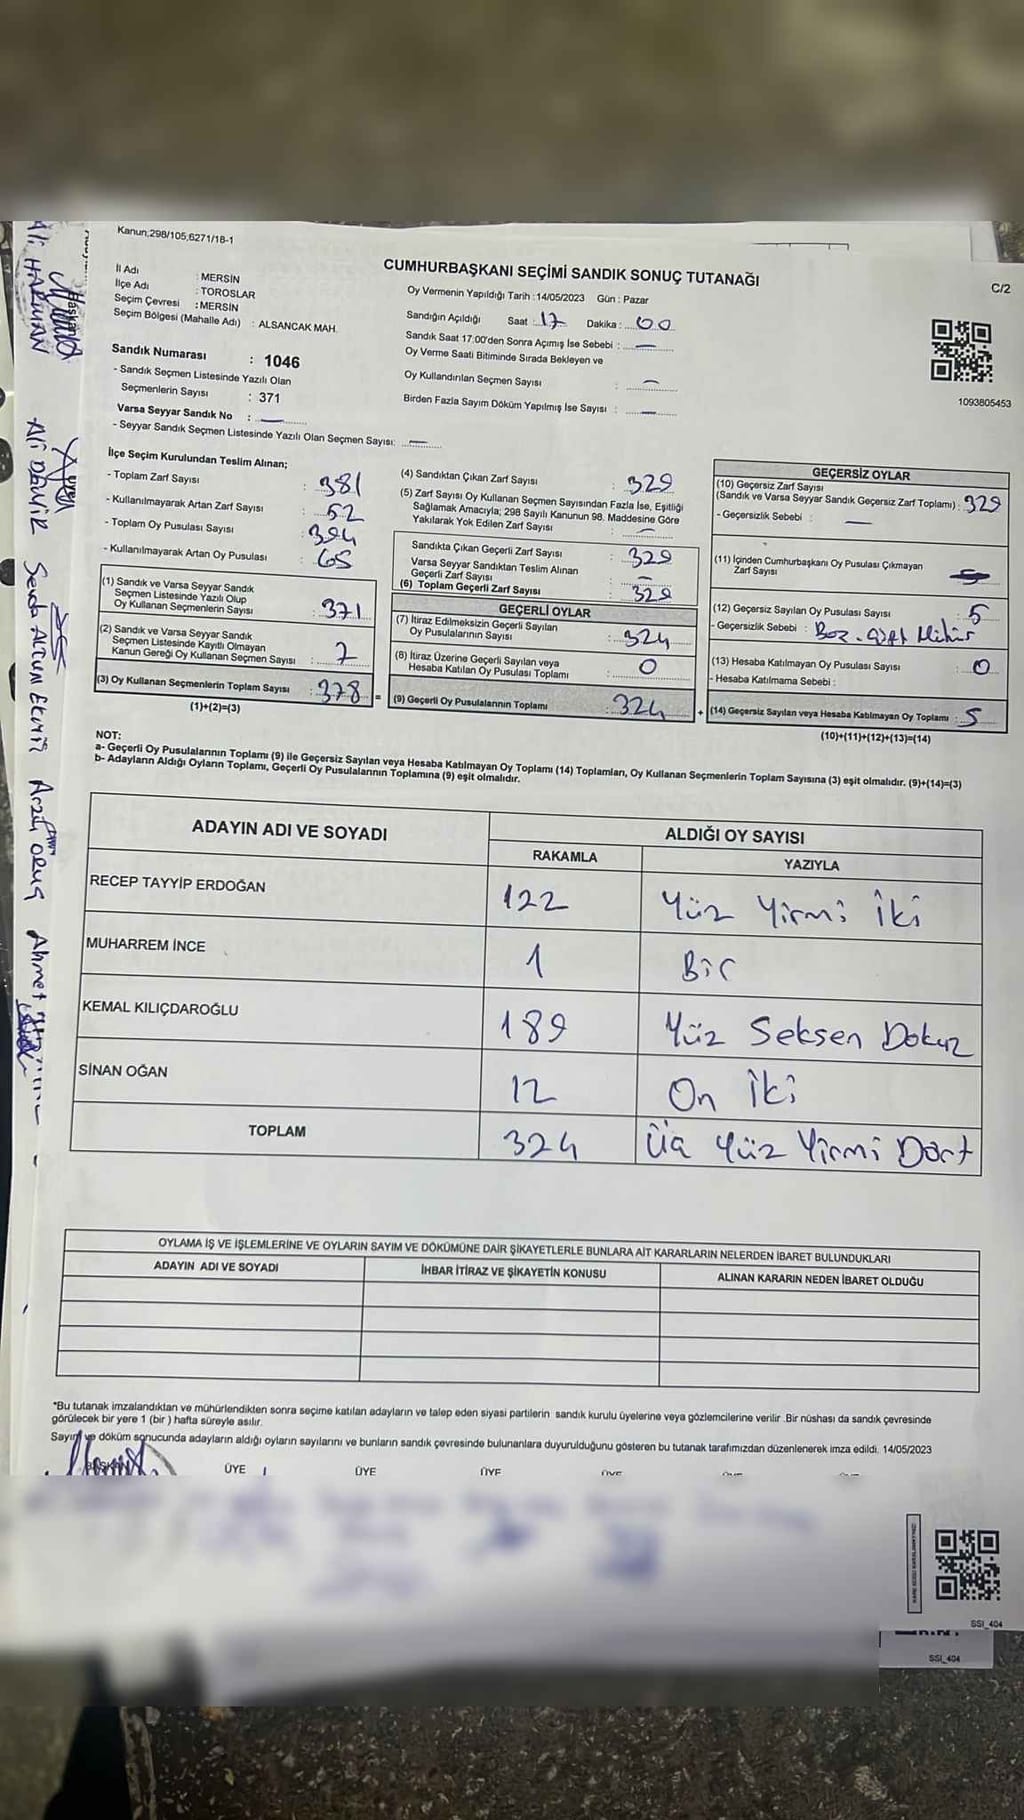 Kanun;298/105,6271/18-1
CUMHURBAŞKANI SEÇİMİ SANDIK SONUÇ TUTANAĞI
C/2
İl Adı : MERSİN
İlçe Adı : TOROSLAR
Seçim Çevresi : MERSİN
Seçim Bölgesi (Mahalle Adı) : ALSANCAK MAH.
Oy Vermenin Yapıldığı Tarih : 14/05/2023 Gün : Pazar
Sandığın Açıldığı Saat : 17 Dakika : 00
Sandık Saat 17:00'den Sonra Açımış İse Sebebi : —
Oy Verme Saati Bitiminde Sırada Bekleyen ve
Oy Kullandırılan Seçmen Sayısı : —
Birden Fazla Sayım Döküm Yapılmış İse Sayısı : —
1093805453
Sandık Numarası : 1046
- Sandık Seçmen Listesinde Yazılı Olan
Seçmenlerin Sayısı : 371
Varsa Seyyar Sandık No : —
- Seyyar Sandık Seçmen Listesinde Yazılı Olan Seçmen Sayısı: —
İlçe Seçim Kurulundan Teslim Alınan;
- Toplam Zarf Sayısı : 381
- Kullanılmayarak Artan Zarf Sayısı : 52
- Toplam Oy Pusulası Sayısı : 394
- Kullanılmayarak Artan Oy Pusulası : 65
(1) Sandık ve Varsa Seyyar Sandık
Seçmen Listesinde Yazılı Olup
Oy Kullanan Seçmenlerin Sayısı : 371
(2) Sandık ve Varsa Seyyar Sandık
Seçmen Listesinde Kayıtlı Olmayan
Kanun Gereği Oy Kullanan Seçmen Sayısı : 7
(3) Oy Kullanan Seçmenlerin Toplam Sayısı : 378 =
(1)+(2)=(3)
(4) Sandıktan Çıkan Zarf Sayısı : 329
(5) Zarf Sayısı Oy Kullanan Seçmen Sayısından Fazla İse, Eşitliği
Sağlamak Amacıyla; 298 Sayılı Kanunun 98. Maddesine Göre
Yakılarak Yok Edilen Zarf Sayısı : —
Sandıkta Çıkan Geçerli Zarf Sayısı : 329
Varsa Seyyar Sandıktan Teslim Alınan
Geçerli Zarf Sayısı : —
(6) Toplam Geçerli Zarf Sayısı : 329
GEÇERLİ OYLAR
(7) İtiraz Edilmeksizin Geçerli Sayılan
Oy Pusulalarının Sayısı : 324
(8) İtiraz Üzerine Geçerli Sayılan veya
Hesaba Katılan Oy Pusulası Toplamı : 0
(9) Geçerli Oy Pusulalarının Toplamı : 324 +
GEÇERSİZ OYLAR
(10) Geçersiz Zarf Sayısı
(Sandık ve Varsa Seyyar Sandık Geçersiz Zarf Toplamı) : 329
- Geçersizlik Sebebi : —
(11) İçinden Cumhurbaşkanı Oy Pusulası Çıkmayan
Zarf Sayısı :
(12) Geçersiz Sayılan Oy Pusulası Sayısı : 5
- Geçersizlik Sebebi : Boz - Çift Mühür
(13) Hesaba Katılmayan Oy Pusulası Sayısı : 0
- Hesaba Katılmama Sebebi :
(14) Geçersiz Sayılan veya Hesaba Katılmayan Oy Toplamı : 5
(10)+(11)+(12)+(13)=(14)
NOT:
a- Geçerli Oy Pusulalarının Toplamı (9) ile Geçersiz Sayılan veya Hesaba Katılmayan Oy Toplamı (14) Toplamları, Oy Kullanan Seçmenlerin Toplam Sayısına (3) eşit olmalıdır. (9)+(14)=(3)
b- Adayların Aldığı Oyların Toplamı, Geçerli Oy Pusulalarının Toplamına (9) eşit olmalıdır.
ADAYIN ADI VE SOYADI ALDIĞI OY SAYISI
RAKAMLA YAZIYLA
RECEP TAYYİP ERDOĞAN 122 Yüz Yirmi İki
MUHARREM İNCE 1 Bir
KEMAL KILIÇDAROĞLU 189 Yüz Seksen Dokuz
SİNAN OĞAN 12 On İki
TOPLAM 324 Üç Yüz Yirmi Dört
OYLAMA İŞ VE İŞLEMLERİNE VE OYLARIN SAYIM VE DÖKÜMÜNE DAİR ŞİKAYETLERLE BUNLARA AİT KARARLARIN NELERDEN İBARET BULUNDUKLARI
ADAYIN ADI VE SOYADI İHBAR İTİRAZ VE ŞİKAYETİN KONUSU ALINAN KARARIN NEDEN İBARET OLDUĞU
*Bu tutanak imzalandıktan ve mühürlendikten sonra seçime katılan adayların ve talep eden siyasi partilerin sandık kurulu üyelerine veya gözlemcilerine verilir .Bir nüshası da sandık çevresinde
görülecek bir yere 1 (bir ) hafta süreyle asılır.
Sayım ve döküm sonucunda adayların aldığı oyların sayılarını ve bunların sandık çevresinde bulunanlara duyurulduğunu gösteren bu tutanak tarafımızdan düzenlenerek imza edildi. 14/05/2023
BAŞKAN ÜYE ÜYE ÜYE
SSI_404
SSI_404
Ali HARMAN
Başkan
Ali DEMİR
Sevda ALTUN EKİNCİ
Arzu ORUÇ
Ahmet